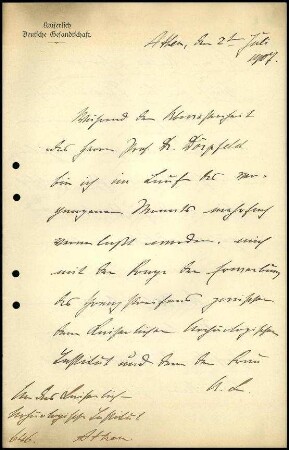 Kaiserlich
Deutsche Gesandtschaft.
Athen, den 2ten Juli
1907.
Während der Abwesenheit
des Herrn Prof. Dr. Dörpfeld
bin ich im Laufe des ver-
gangenen Monats mehrfach
veranlaßt worden, mich
mit der Frage der Erwerbung
des Grenzstreifens zwischen
dem Kaiserlichen Archäologischen
Institut und dem der Frau
An das Kaiserlich
Archäologische Institut
Athen